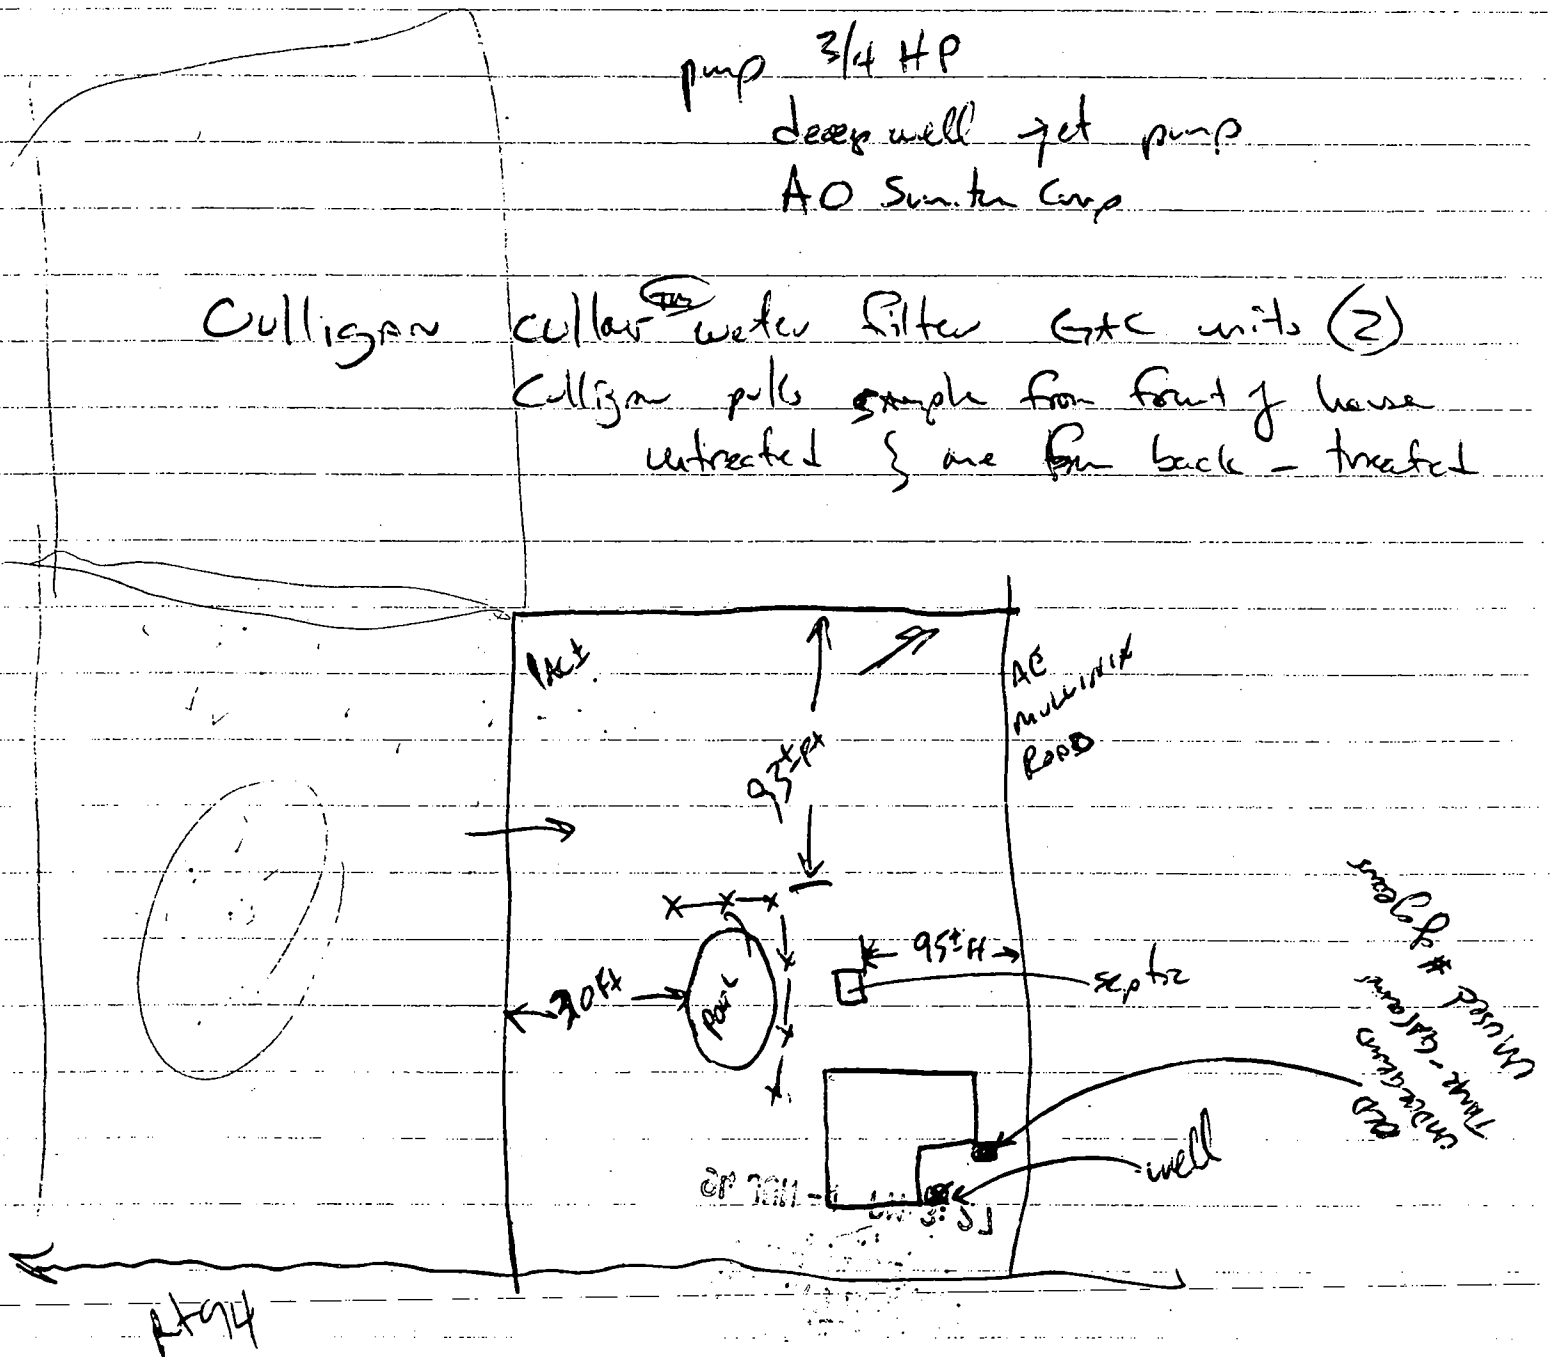 pump 3/4 HP
deep well jet pump
AO Smith Corp
Culligan cullar TM water filter GAC units (2)
Culligan pulls sample from front of house
untreated & one from back - treated
1 AC±
AE
MULLINIX
ROAD
93± ft
95± ft
septic
30 ft
Pool
OLD
UNDERGROUND
TANK - GAS
UNUSED # of years
well
Rt 94